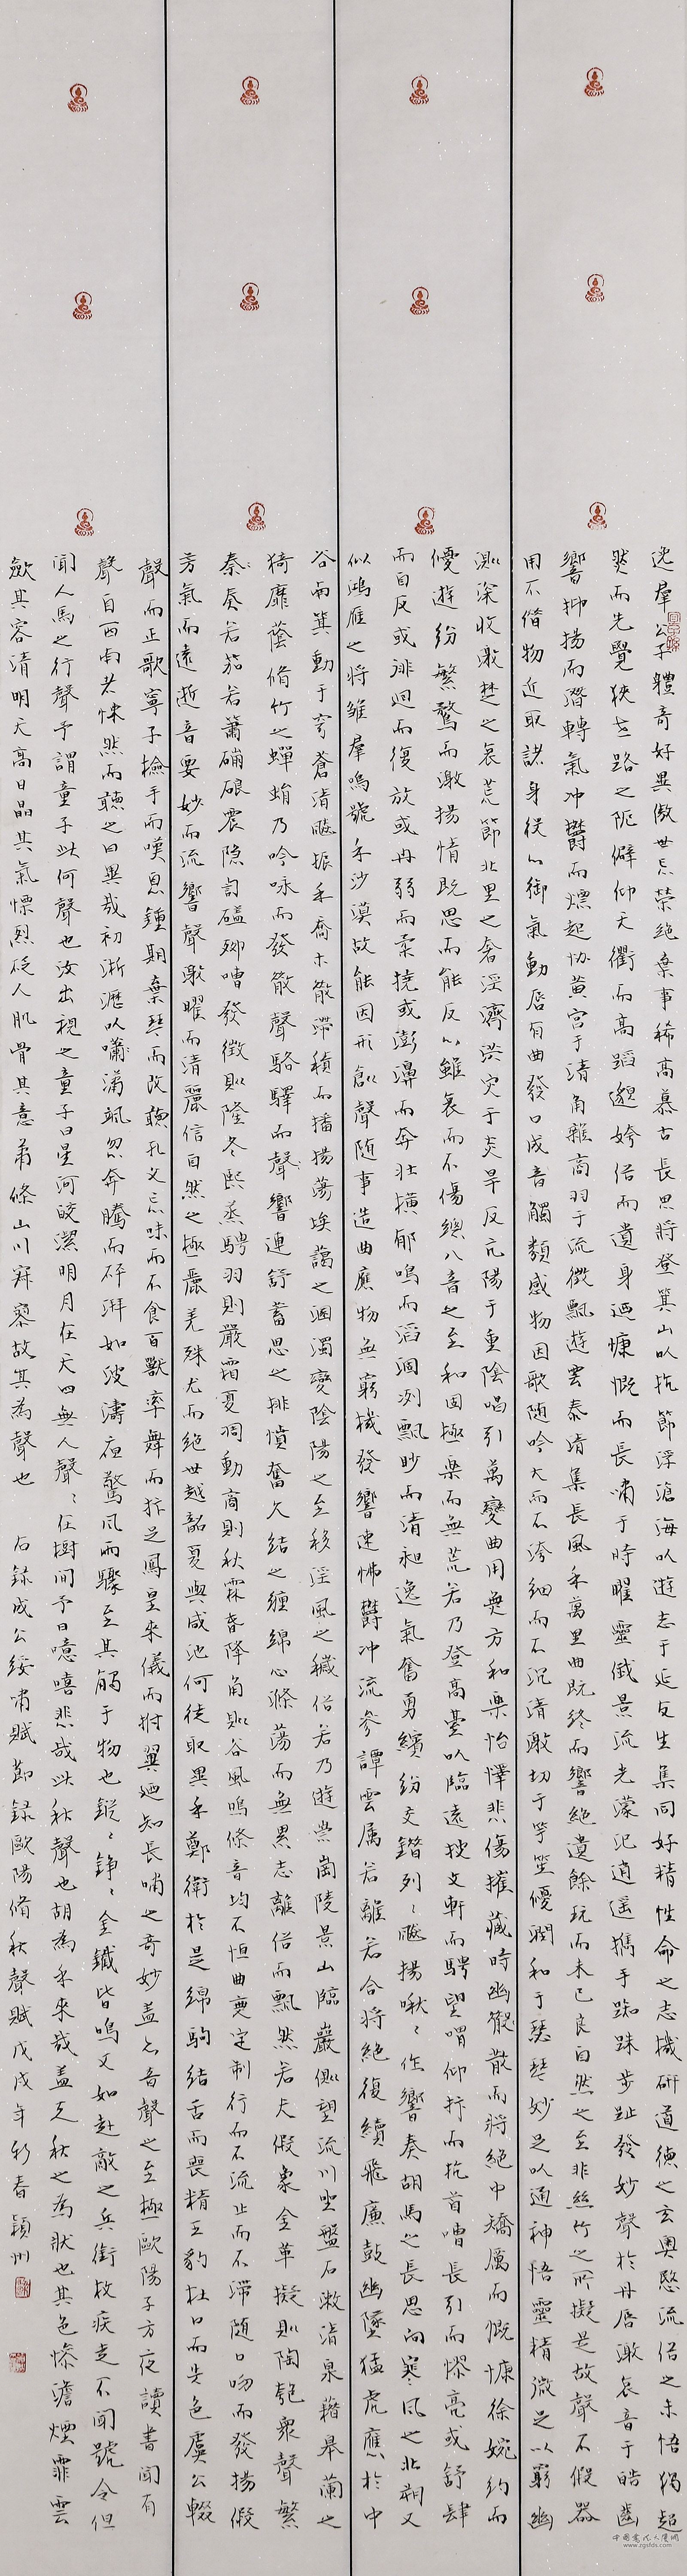 逸羣公子體奇好異傲世忘榮絶棄事稀高慕古長思將登箕山以抗節浮滄海以遊志于延友生集同好精性命之志機研道德之玄奧愍流俗之未悟獨超
然而先覺狹世路之阨僻仰天衢而高蹈邈姱俗而遺身迺慷慨而長嘯于時曜靈俄景流光濛汜逍遥攜手踟跦步趾發妙聲於丹唇激哀音于皓齒
響抑揚而潛轉氣冲鬱而熛起協黄宮于清角雜商羽于流徵飄遊雲泰清集長風乎萬里曲既終而響絶遺餘玩而未已良自然之至非絲竹之所擬是故聲不假器
用不借物近取諸身役心御氣動唇有曲發口成音觸類感物因歌随吟大而不洿細而不沉清激切于竽笙優潤和于瑟琴妙足以通神悟靈精微足以窮幽
測深收激楚之哀荒節北里之奢淫濟洪灾于炎旱反亢陽于重陰唱引萬變曲用無方和樂怡懌悲傷摧藏時幽散而將絶中矯厲而慨慷徐婉約而
優遊紛繁騖而激揚情既思而能反心雖哀而不傷總八音之至和固極樂而無荒若乃登高臺以臨遠披文軒而騁望喟仰抃而抗首嘈長引而憀亮或舒肆
而自反或徘迴而復放或冉弱而柔撓或澎濞而奔壯横鬱鳴而滔涸冽飄眇而清昶逸氣奮勇繽紛交錯列〻飈揚啾〻作響奏胡馬之長思向寒風之北朔又
似鴻雁之將雛羣鳴號乎沙漠故能因形創聲随事造曲應物無窮機發響速怫鬱冲流參譚雲属若離若合將絶復續飛廉鼓幽墜猛虎應於中
谷南箕動于穹蒼清飈振乎喬木散滯積而播揚蕩埃藹之溷濁變陰陽之至移淫風之穢俗若乃遊崇崗陵景山臨巖側望流川坐盤石漱清泉藉皋蘭之
猗靡蔭脩竹之蟬蜎乃吟咏而發散聲駱驛而響連舒蓄思之悱憤奮久結之纏綿心滌蕩而無累志離俗而飄然若夫假象金革擬則陶匏衆聲繁
奏若笳若簫磞硠震隐訇磕嘈發徵則隆冬熙蒸騁羽則嚴霜夏凋動商則秋霖春降奏角則谷風鳴條音均不恒曲無定制行而不流止而不滯随口吻而發揚假
芳氣而遠逝音要妙而流響聲激曜而清麗信自然之極麗羌殊尤而绝世越韶夏與咸池何徒取異乎鄭衛於是綿駒结舌而喪精王豹杜口而失色虞公輟
聲而止歌寧子撿手而嘆息鍾期棄琴而改聽孔父忘味而不食百獸率舞而抃足鳳皇來儀而拊翼迺知長嘯之奇妙蓋亦音聲之至極歐陽子方夜讀書聞有
聲自西南来悚然而聽之曰異哉初淅瀝以嘯蕭颯忽奔騰而砰湃如波濤夜驚風雨驟至其觸于物也鏦〻錚〻金鐵皆鳴又如赴敵之兵銜枚疾走不聞號令但
聞人馬之行聲予謂童子此何聲也汝出視之童子曰星河皎潔明月在天四無人聲〻在樹間予曰噫嘻悲哉此秋聲也胡為乎來哉蓋夫秋之為狀也其色惨澹煙霏雲
歛其容清明天高日晶其氣慄烈砭人肌骨其意蕭條山川寂寥故其為聲也　右録成公綏嘯賦節録歐陽脩秋聲賦戊戌年新春穎州
中国书法大厦网
www.zgsfds.com